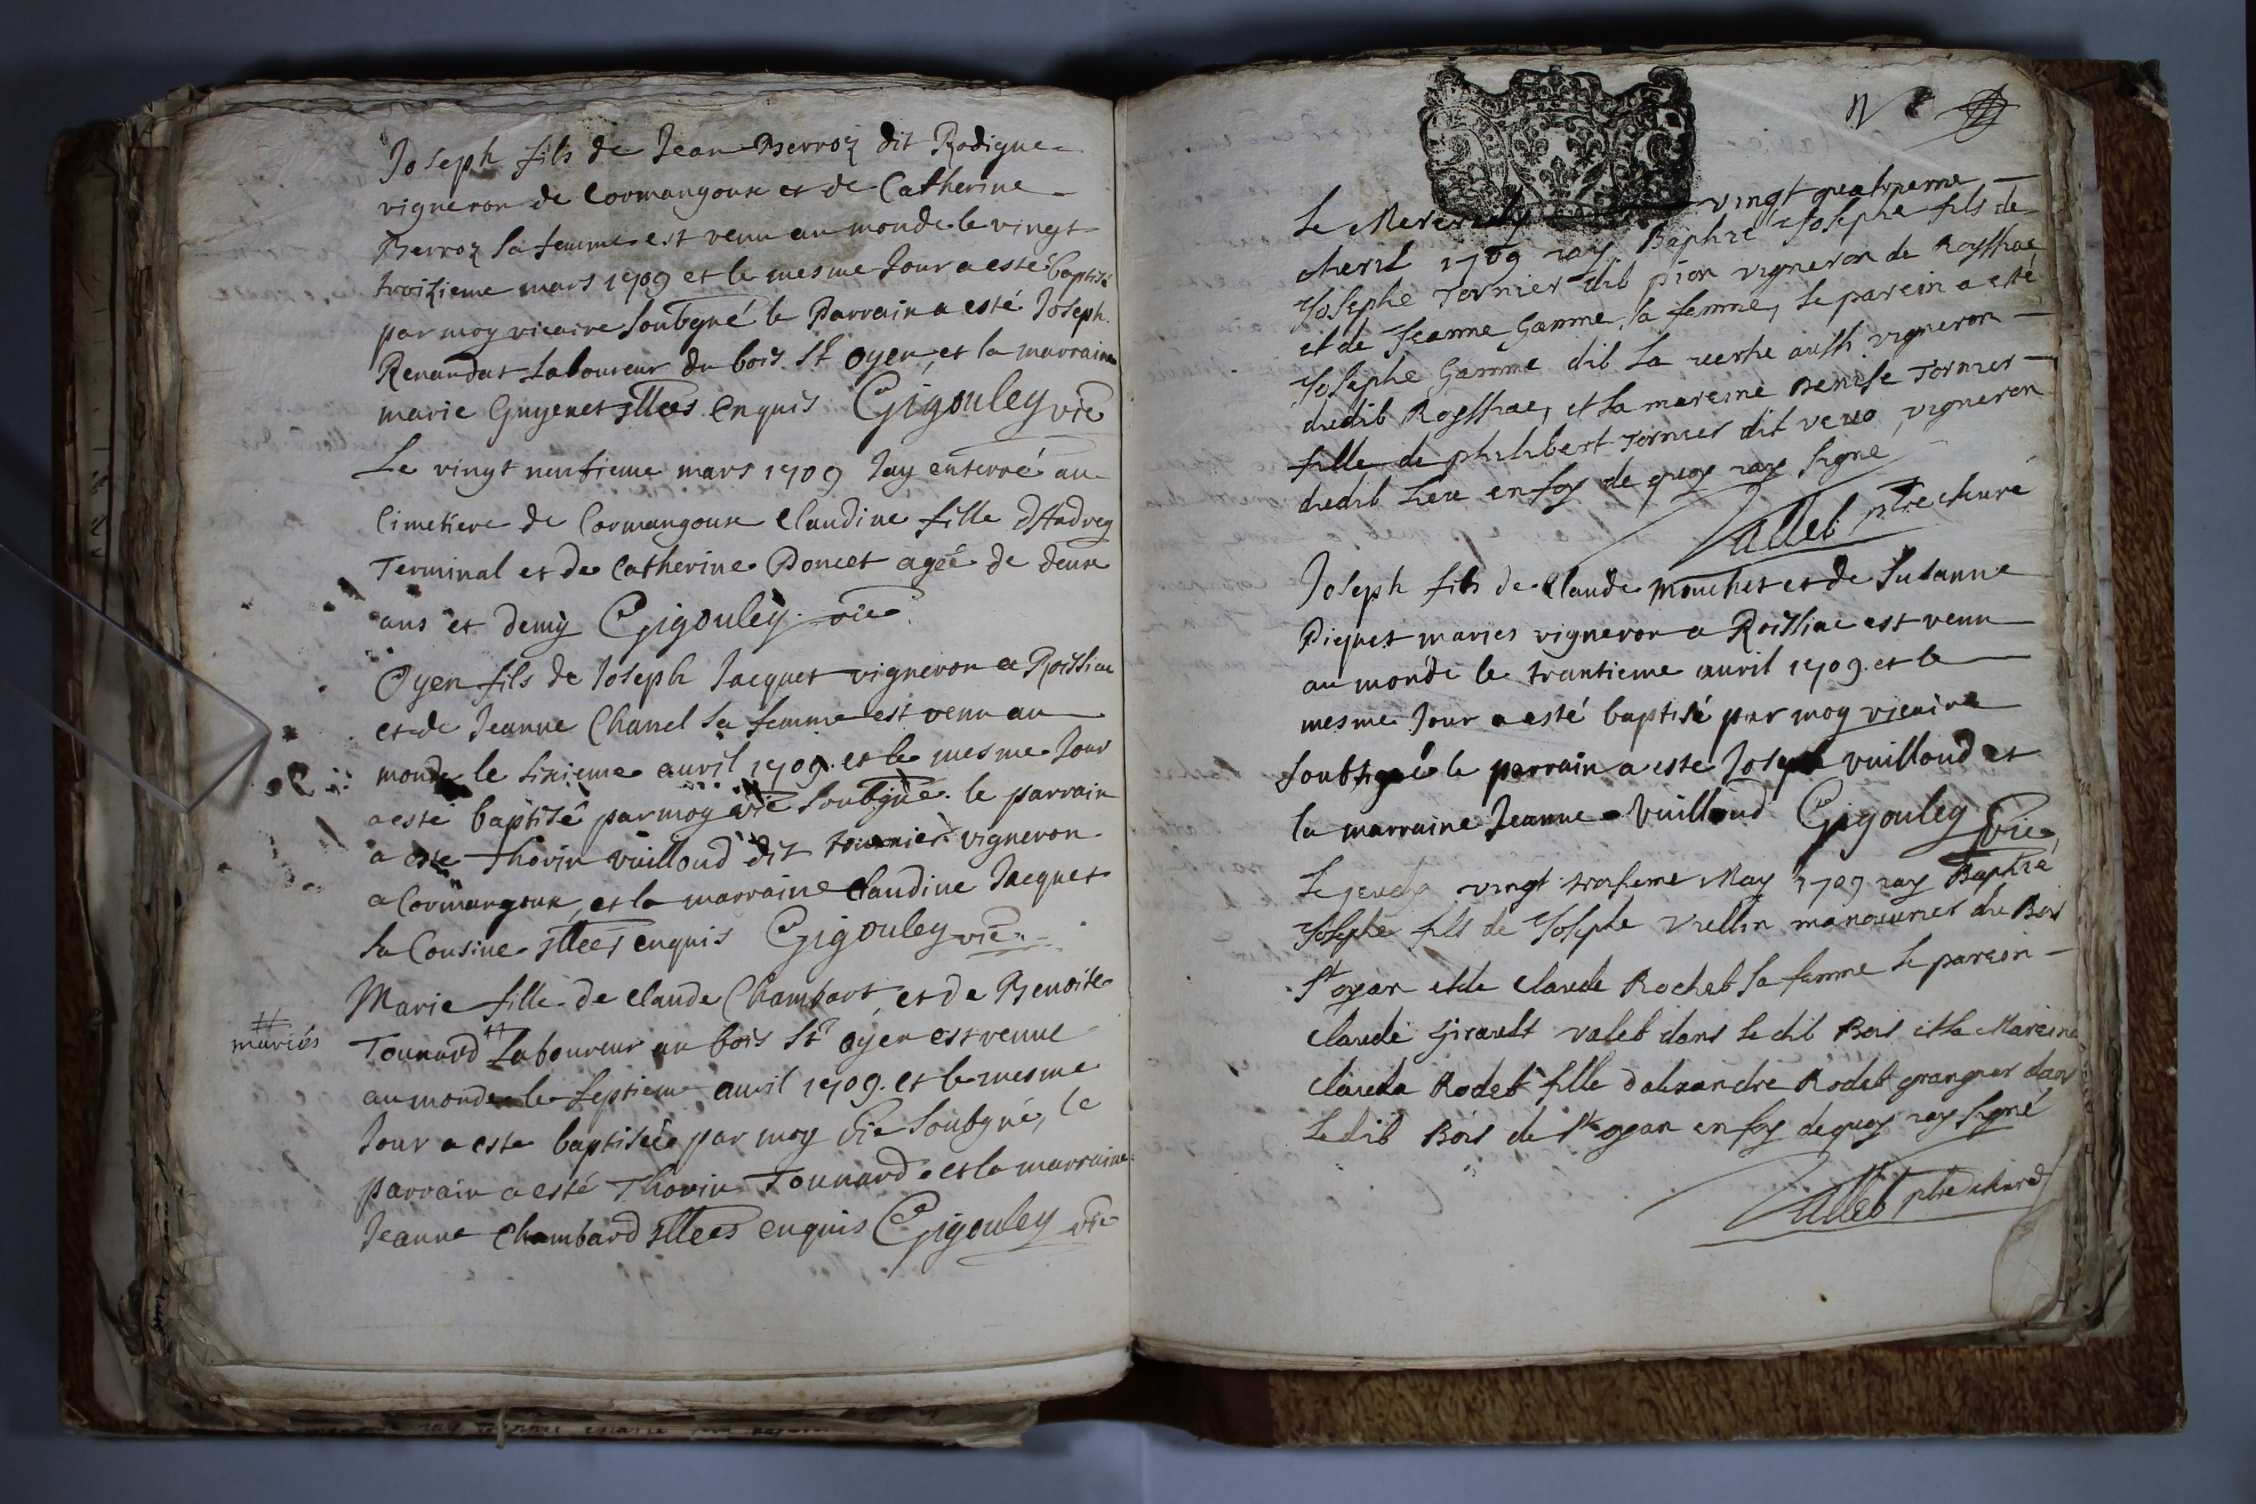 Joseph fils de Jean Berroz dit Rodigue
vigneron de Cormangoux et de Catherine
Berroz sa femme est venu au monde le vingt
troizieme mars 1709 et le mesme Jour a esté baptisé
par moy vicaire soubgné le Parrain a esté Joseph
Renaudat Laboureur du bois St Oyen, et la marraine
marie Guyenet illees enquis CGigouley vic
Le vingt neufieme mars 1709 Jay enterré au
Cimetiere de Cormangoux Claudine fille dAndrey
Terminal et de Catherine Poncet agée de deux
ans et demy CGigouley vic
Oyen fils de Joseph Jacquet vigneron a Roissiac
et de Jeanne Chanel sa femme est venu au
monde le sixieme auril 1709. et le mesme Jour
a esté baptisé par moy vic soubgné. le parrain
a esté Thorin vuilloud dit tournier vigneron
a Cormangoux, et la marraine Claudine Jacquet
sa Cousine illees enquis CGigouley vic
Marie fille de Claude Chambart et de Benoite
# mariés
Tounard # Laboureur au bois St Oyen est venue
au monde le septieme auril 1709. et le mesme
Jour a este baptisée par moy vic soubgné, le
parrain a esté Thorin Tounard et la marraine
Jeanne Chambard illees enquis CGigouley vic
Le Mercredy vingt quatrieme
Avril 1709 jay Baptizé Josephe fils de
Josephe Tornier dit pion vigneron de Royssiac
et de Jeanne Gamme, sa femme, le parein a esté
Josephe Gamme dit la verthe aussi vigneron
dudit Royssiac, et la mareine Denise Tornier
fille de philibert Tornier dit veuo, vigneron
dudit lieu en foy de quoy jay signé
Vallet ptre curé
Joseph fils de Claude Mouchet et de Susanne
Piquet mariés vigneron a Roissiac est venu
au monde le trantieme auril 1709. et le
mesme Jour a esté baptisé par moy vicaire
soubsigné le parrain a este Joseph vuilloud et
la marraine Jeanne Vuilloud CGigouley vic
Le jeudy vingt troisieme May 1709 jay Baptizé
Josephe fils de Josephe Vuellin manouurier du Bois
St oyan et de Claude Rochet sa femme le parein
Claude Girault valet dans le dit Bois et la Mareine
Clauda Rodet fille dalexandre Rodet grangner dans
Ledit Bois de St oyan en foy dequoy jay signé
Vallet ptre curé